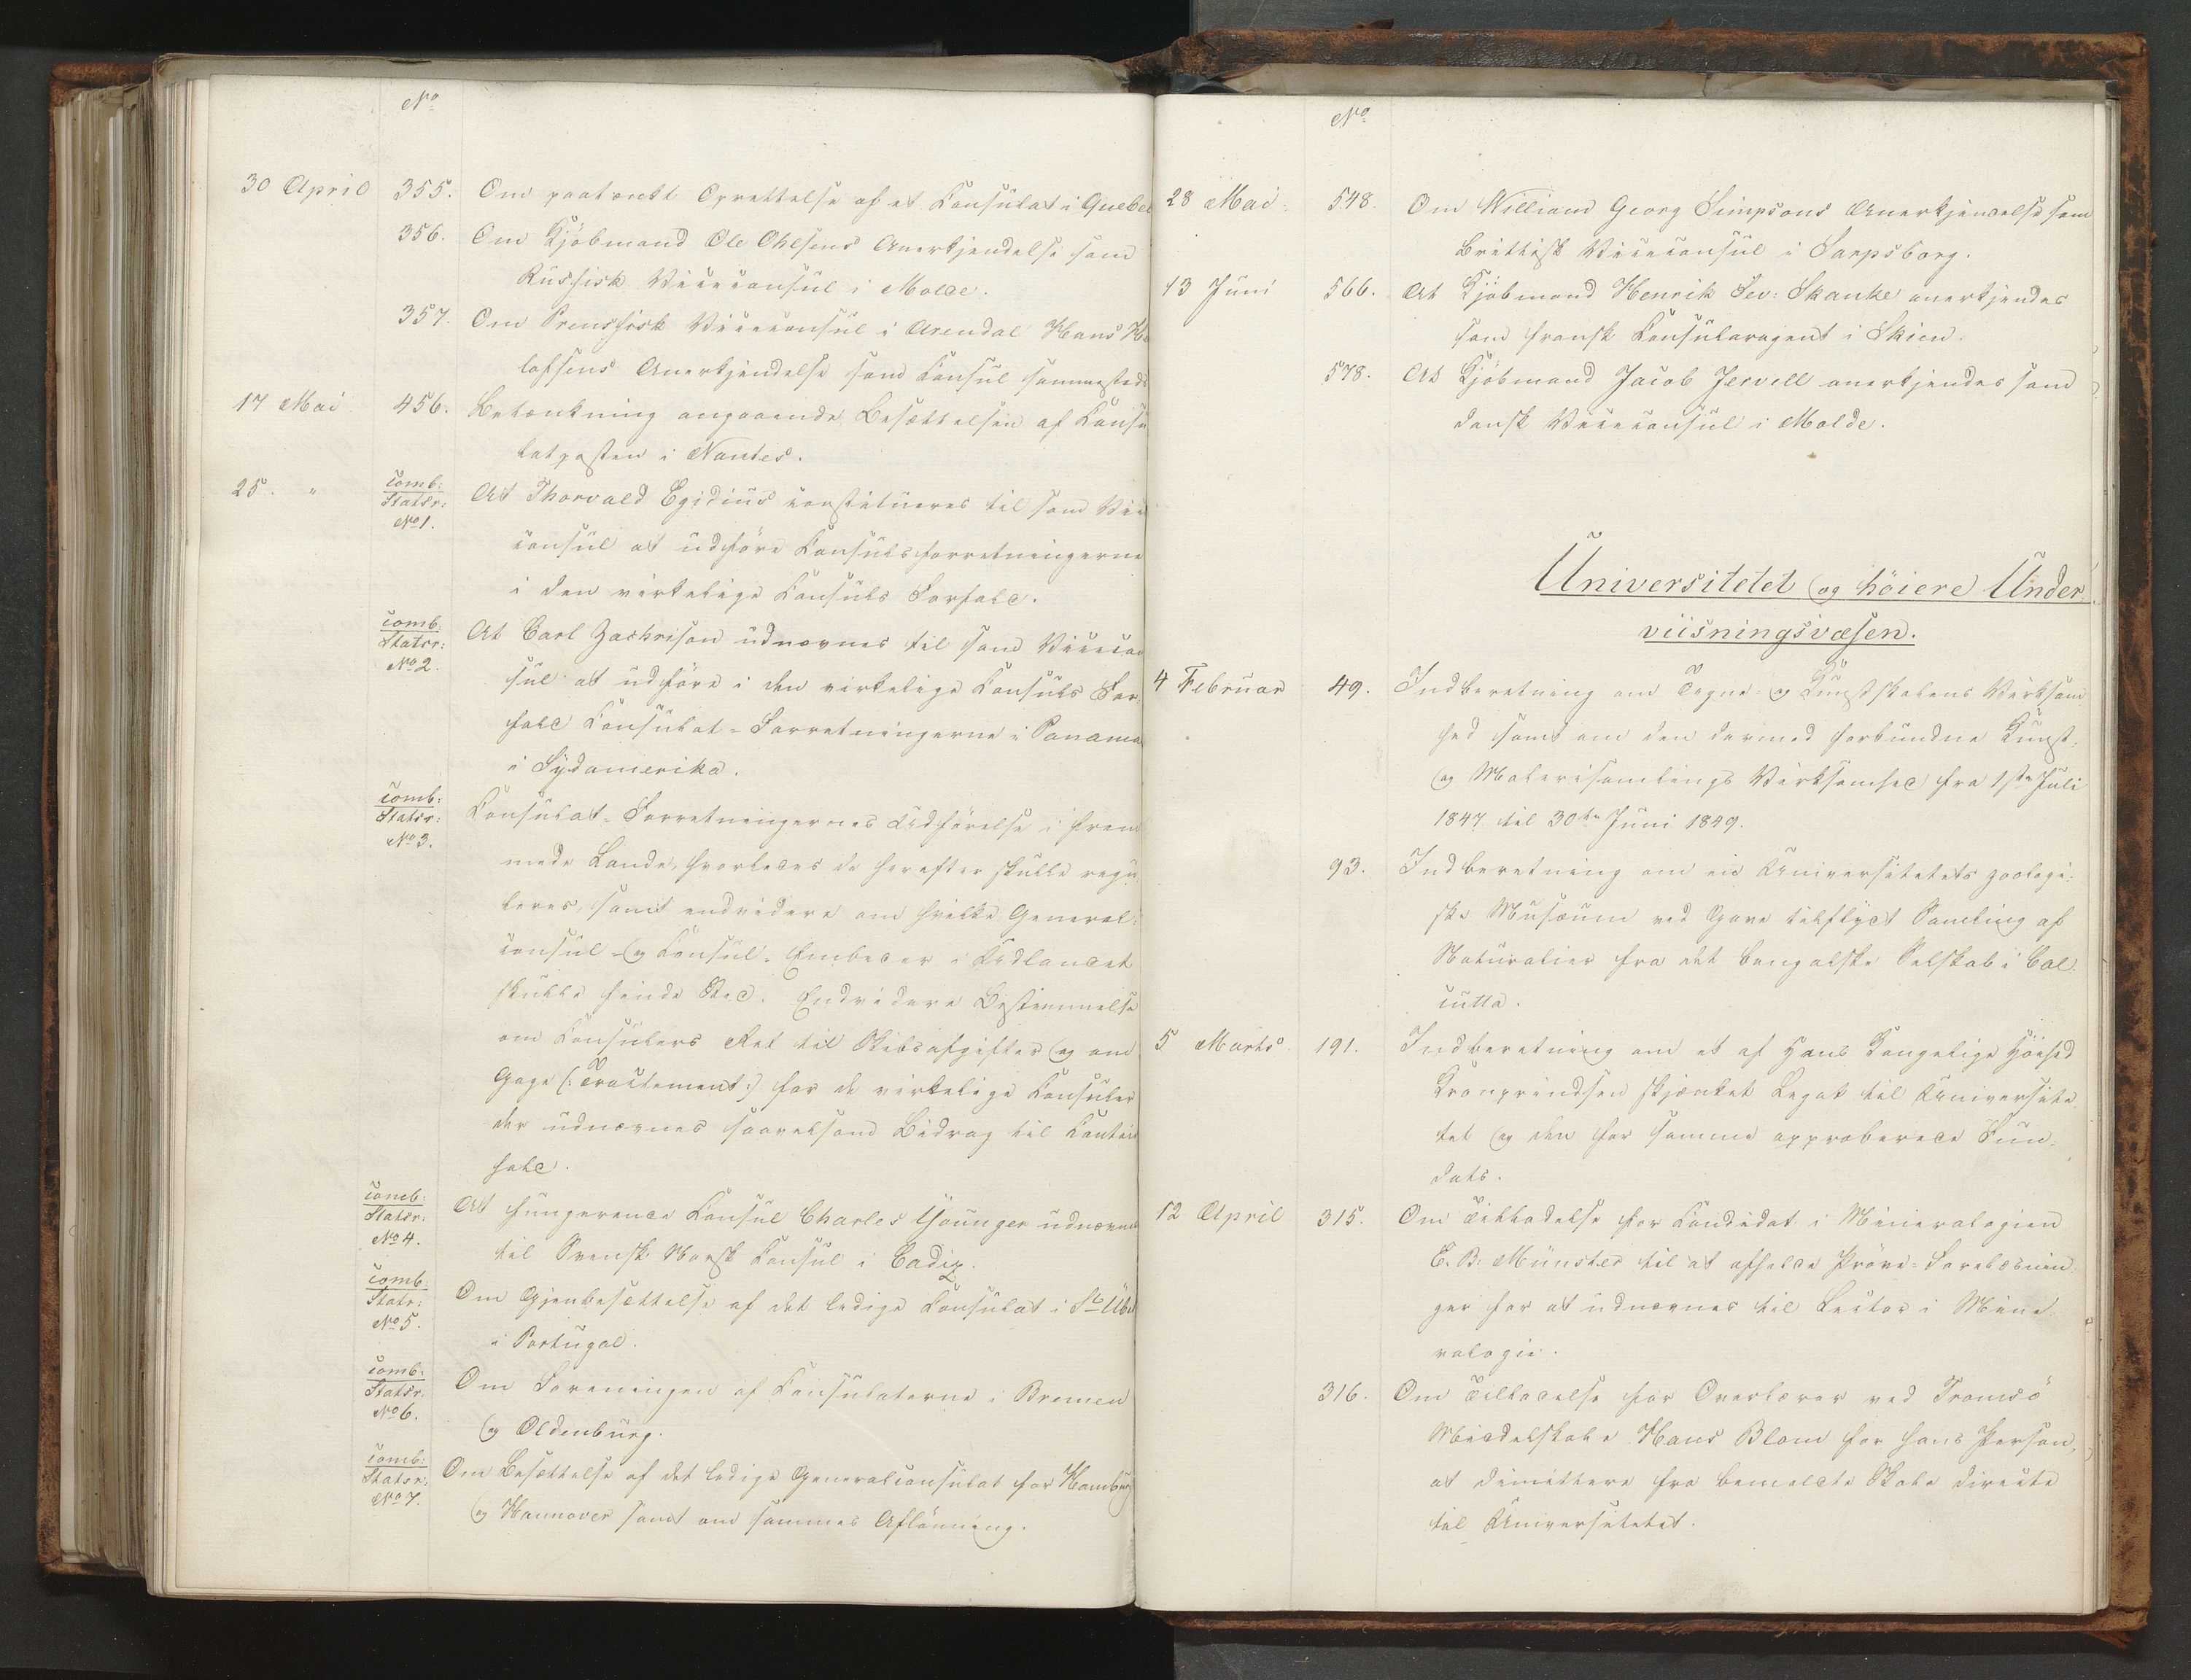 No
30 April 355. Om paatænkt Oprettelse af et Consulat i Quebec
356. Om Kjøbmand Ole Ohlsens Anerkjendelse som
Russisk Viceconsul i Molde.
357. Om Preussisk Viceconsul i Arendal Hans He
lofsens Anerkjendelse som Consul sammesteds
17 Mai 456. Betænkning angaaende Besættelsen af Consu
latposten i Nantes.
25. " Comb: Statsr: No 1. At Thorvald Egidius constitueres til som Vice
consul at udføre Consulsforretningerne
i den virkelige Consuls Forfald.
Comb: Statsr: No 2. At Carl Zachrison udnævnes til som Vicecon
sul at udføre i den virkelige Consuls For
fald Consulat-Forretningerne i Panama
i Sydamerika.
Comb: Statsr: No 3. Consulat-Forretningernes Udførelse i frem
mede Lande, hvorledes de herefter skulle regu
leres, samt endvidere om hvilke General-
consul- og Consul-Embeder i Udlandet
skulle finde Sted. Endvidere Bestemmelse
om Consulers Ret til Skibsafgifter og om
Gage (: Tractement :) for de virkelige Consuler
der udnævnes saavelsom Bidrag til Contoir
hold.
Comb: Statsr: No 4. At fungerende Consul Charles Younger udnævnes
til Svensk-Norsk Consul i Cadix.
Comb: Statsr: No 5. Om Gjenbesættelse af det ledige Consulat i St Übes
i Portugal.
Comb: Statsr: No 6. Om Foreningen af Consulaterne i Bremen
og Oldenburg.
Comb: Statsr: No 7. Om Besættelse af det ledige Generalconsulat for Hamburg
og Hannover samt om sammes Aflønning.
No
28 Mai 548. Om William Georg Simpsons Anerkjendelse som
Brittisk Viceconsul i Sarpsborg.
13 Juni 566. At Kjøbmand Henrik Sev: Skanke anerkjendes
som fransk Consularagent i Skien.
578. At Kjøbmand Jacob Jervell anerkjendes som
dansk Viceconsul i Molde.
Universitetet og höiere Under-
viisningsvæsen.
4 Februar 49. Indberetning om Tegne- og Kunstskolens Virksom
hed samt om den dermed forbundne Kunst-
og Malerisamlings Virksomhed fra 1ste Juli
1847 til 30te Juni 1849.
93. Indberetning om en Universitetets zoologi-
ske Musæum ved Gave tilflydt Samling af
Naturalier fra det bengalske Selskab i Cal
cutta.
5 Marts 191. Indberetning om et af Hans Kongelige Höihed
Kronprindsen skjænket Legat til Universite
tet og den for samme approberede Fun-
dats.
12 April 315. Om Tilladelse for Candidat i Mineralogien
E. B. Münster til at afholde Prøve-Forelæsnin-
ger for at udnævnes til Lector i Mine-
ralogie.
316. Om Tilladelse for Overlærer ved Tromsö
Middelskole Hans Blom for hans Person,
at dimittere fra bemeldte Skole directe
til Universitetet.